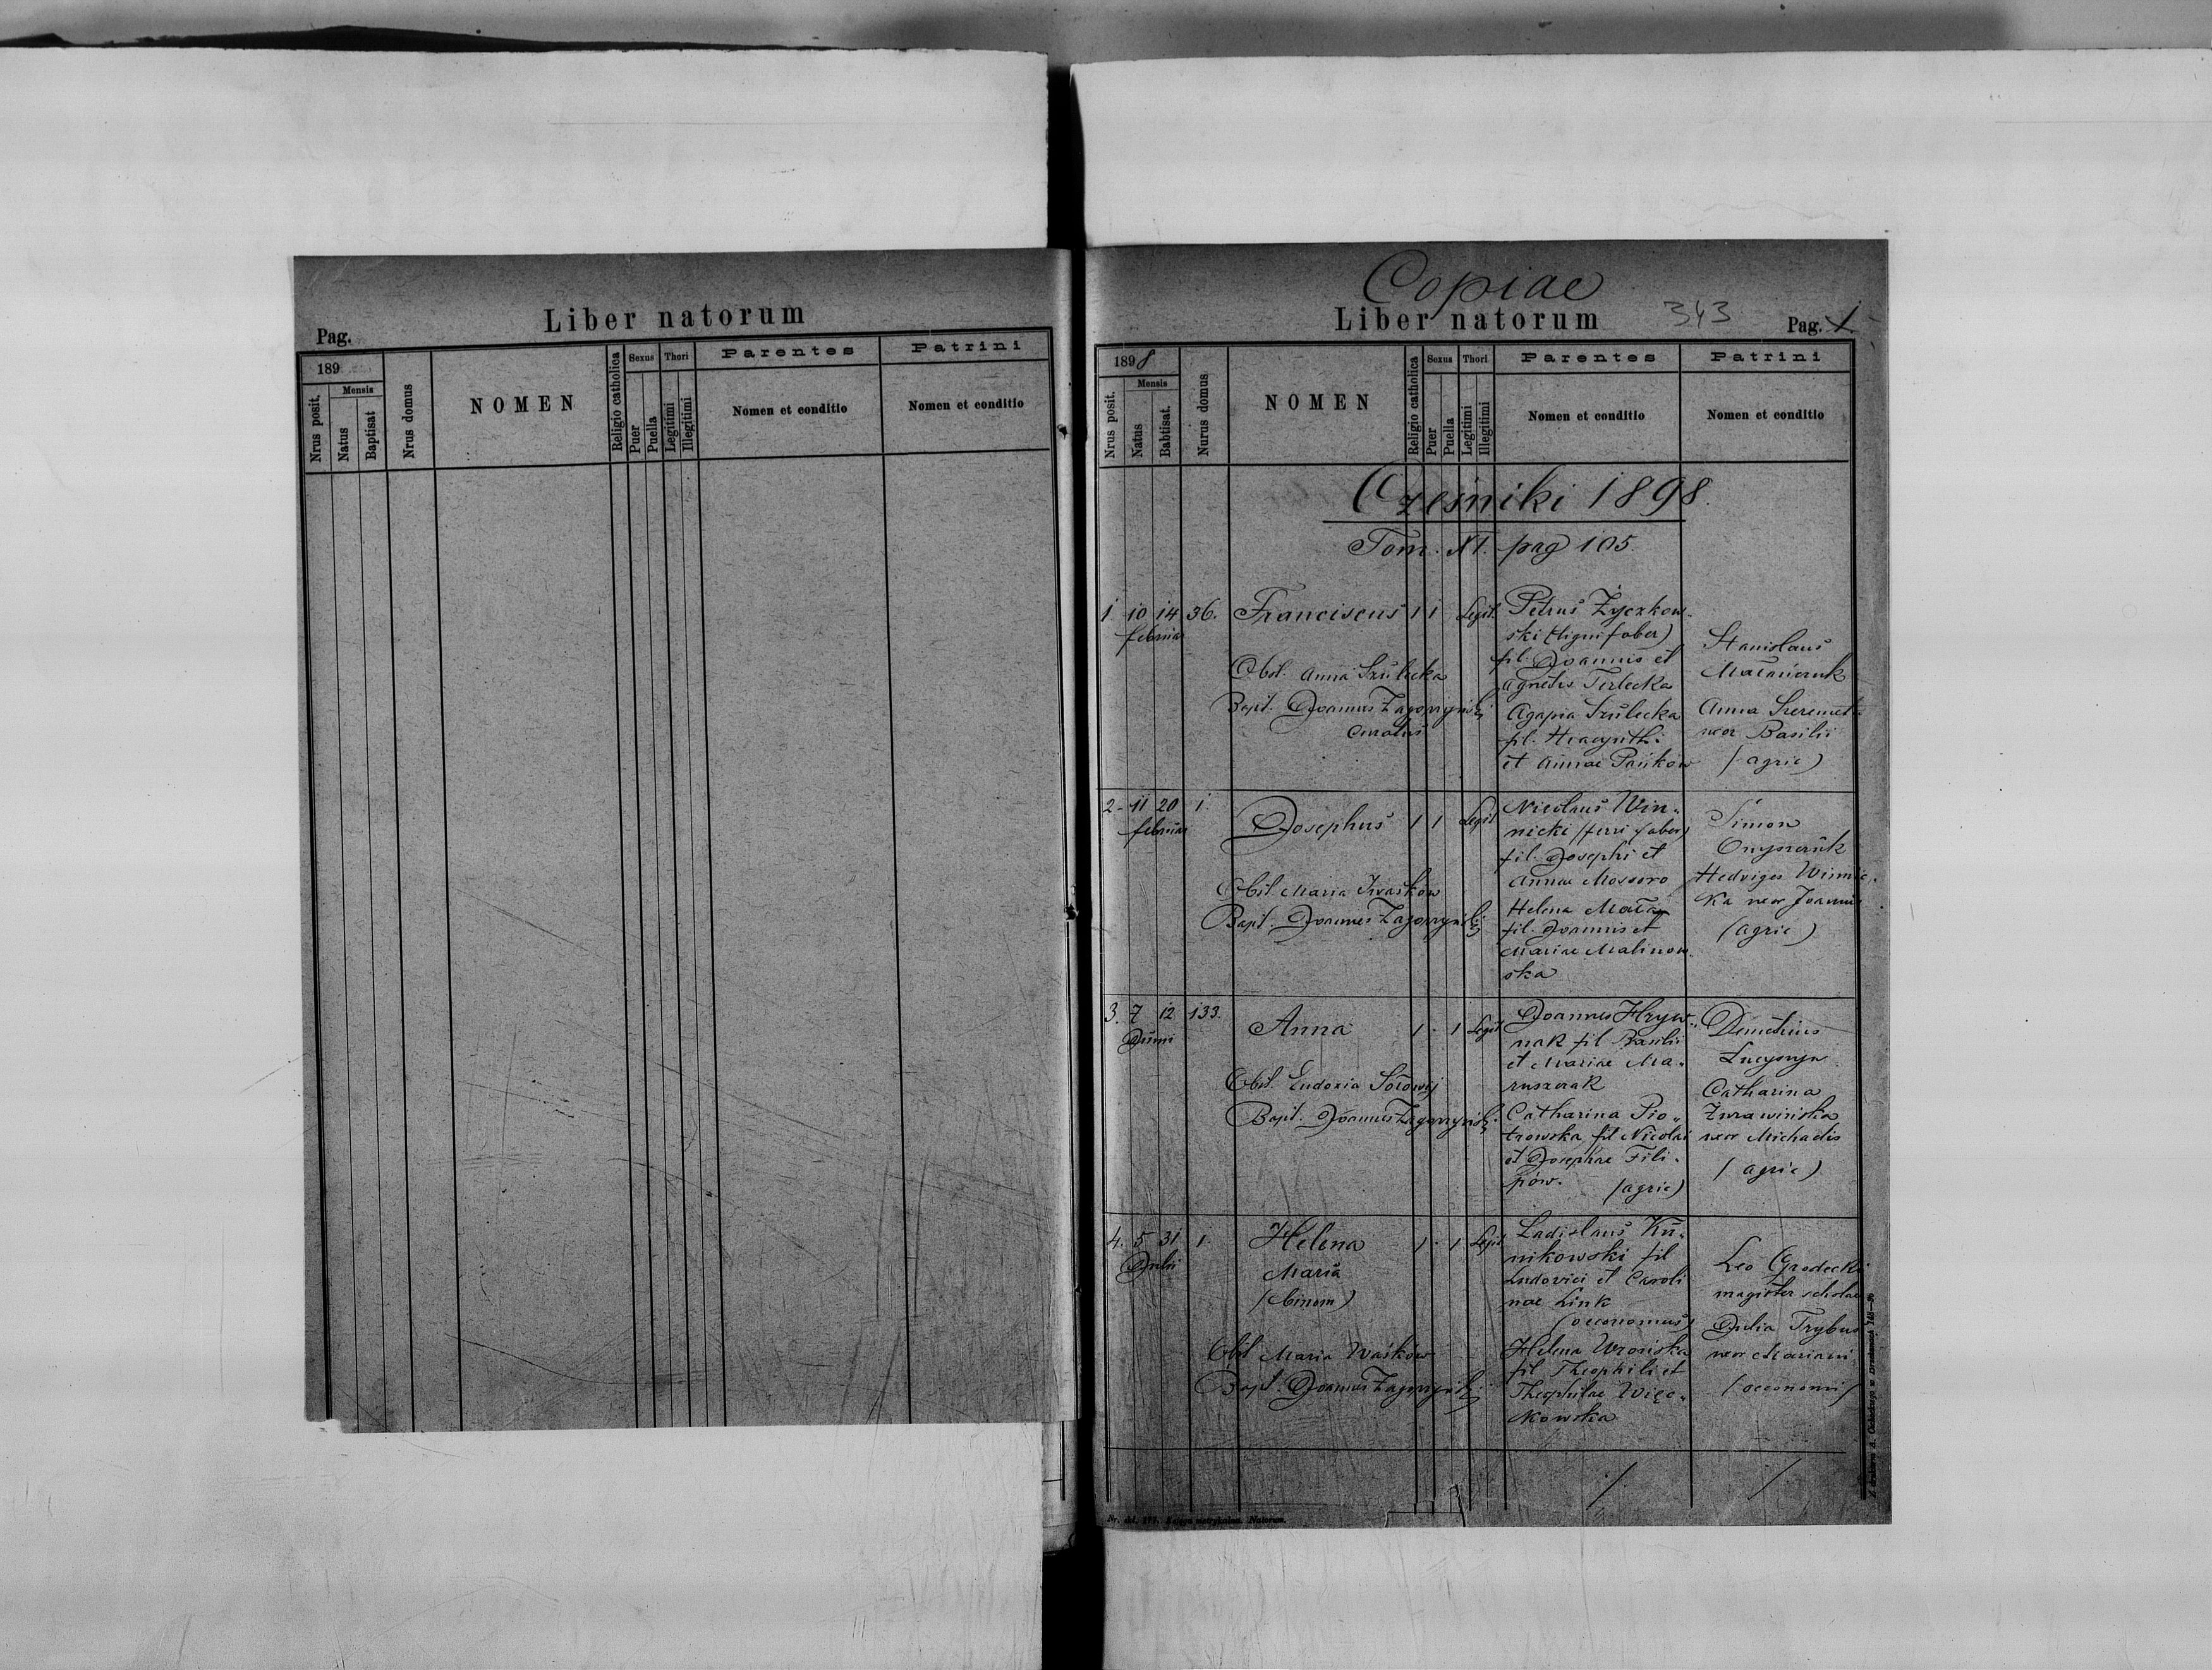 Liber natorum
Pag.
189
Mensis
Nrus posit.
Natus
Baptisat
Nrus domus
NOMEN
Religio catholica
Sexus
Puer
Puella
Thori
Legitimi
Illegitimi
Parentes
Nomen et conditio
Patrini
Nomen et conditio
Copiae
Liber natorum
343
Pag. 1
1898
Mensis
Nrus posit.
Natus
Babtisat.
Nurus domus
NOMEN
Religio catholica
Sexus
Puer
Puella
Thori
Legitimi
Illegitimi
Parentes
Nomen et conditio
Patrini
Nomen et conditio
Cześniki 1898.
Tom. XI. pag 105.
1 10 14 36. Franciscus 1 1 Legit.
februar
Obst. Anna Szulecka
Bapt. Joannes Zagorzyński
Curatus
Petrus Życzkow-
ski (lignifaber)
fil. Joannis et
Agnetis Terlecka
Agapia Szulecka
fil. Hyacynthi
et Annae Pańków
Stanislaus
Anna Szeremeta
uxor Basilii
(agric)
2 11 20 1. Josephus 1 1 Legit
februar
Obst. Maria Iwaśków
Bapt. Joannes Zagorzyński
Nicolaus Win-
nicki (ferri faber)
fil. Josephi et
Annae Mossoro
Helena
fil. Joannis et
Mariae Malinow-
ska
Simon
Hedviges Winnic-
ka uxor Joannis
(agric)
3. 7 12 133. Anna 1 1 Legit
Junii
Obst. Eudoxia Sołowij
Bapt. Joannes Zagorzyński
Joannes Hryw-
nak fil Basilii
et Mariae Ma-
ruszczak
Catharina Pio-
trowska fil Nicolai
et Josephae Fili-
pów. (agric)
Demetrius
Catharina
Żurawińska
uxor Michaelis
(agric)
4. 5 31 1. Helena 1 1 Legit
Julii
Maria
(binom)
Obst Maria Waśków
Bapt. Joannes Zagorzyński
Ladislaus Ku-
nikowski fil
Ludovici et Caroli
nae Link
(oeconomus)
Helena Wrońska
fil Theophili et
Theophilae Więc-
kowska
Leo Grodecki
magister scholae
Julia Trybus
uxor Mariani
(oeconomi)
Nr. skł. 277. Księga metrykalna. Natorum.